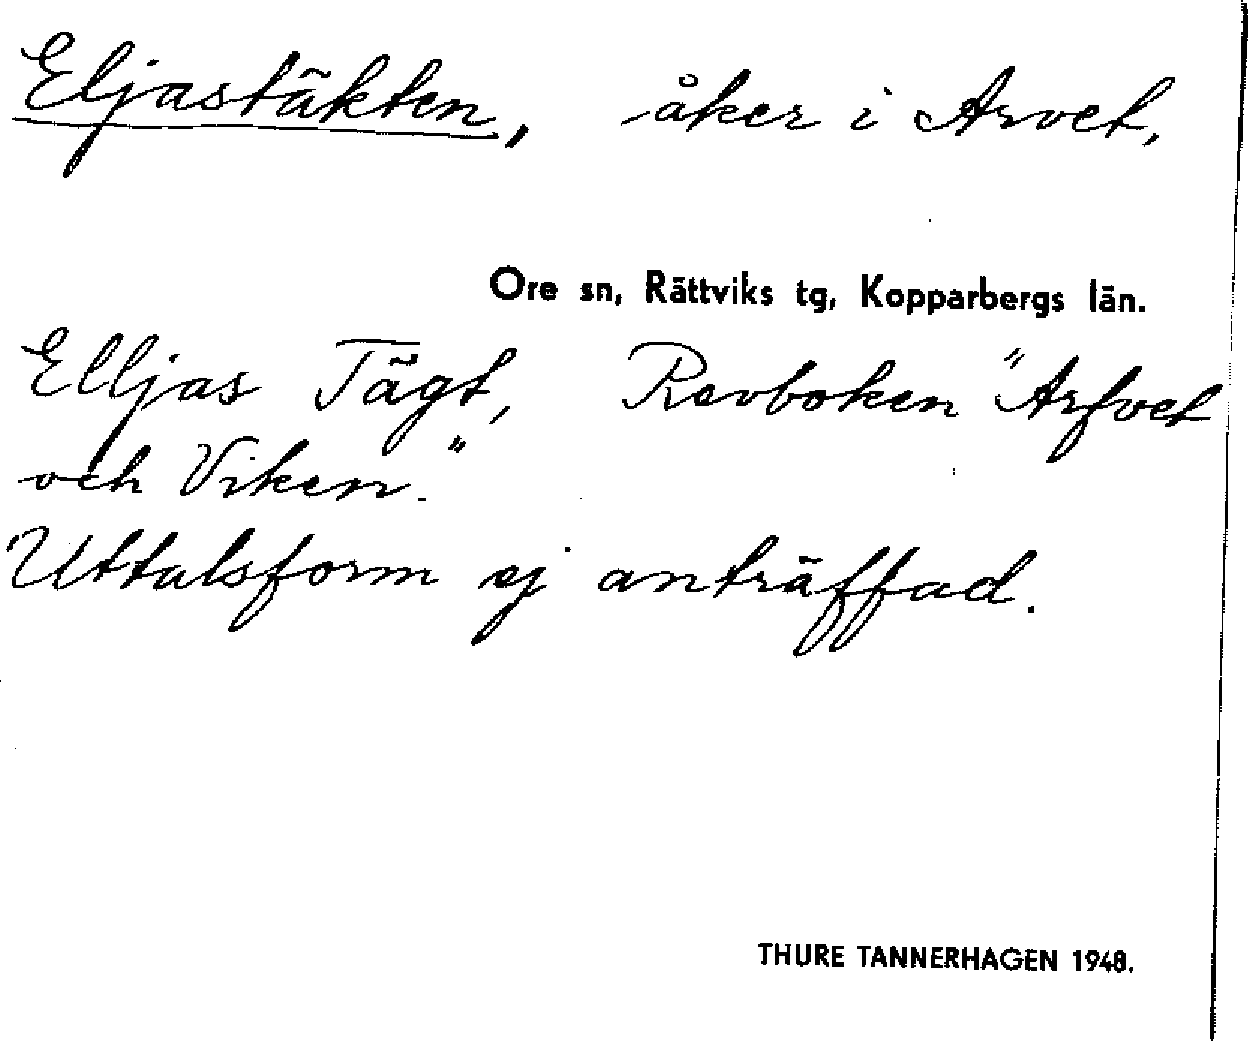 Eljastäkten, åker i Arvet,
Ore sn, Rättviks tg, Kopparbergs län.
Elljas Tägt, Revboken "Arfvet
och Viken."
Uttalsform ej anträffad.
THURE TANNERHAGEN 1948.